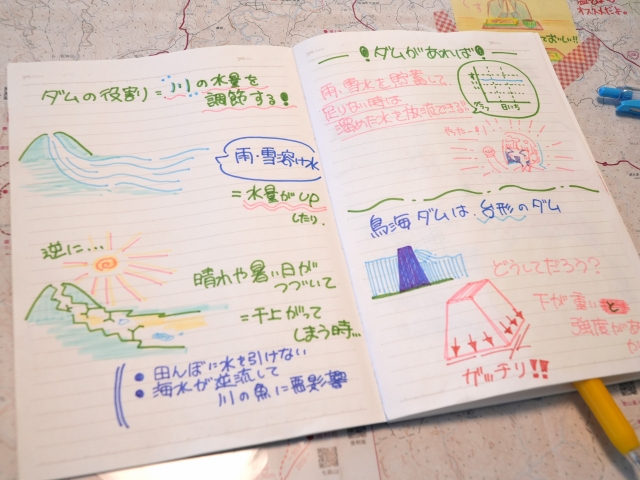 ダムの役割=川の水量を
調節する!
雨・雪溶け水
=水量がup
したり.
逆に…
晴れや暑い日が
つづいて
=干上がって
しまう時…
• 田んぼに水を引けない
• 海水が逆流して
川の魚に悪影響
!ダムがあれば!
雨・雪水を貯蓄して
足りない時は
溜めた水を放流できる
やったー!
鳥海ダムは、台形のダム
どうしてだろう?
下が重いと
強度が
ガッチリ!!
おいしい!!